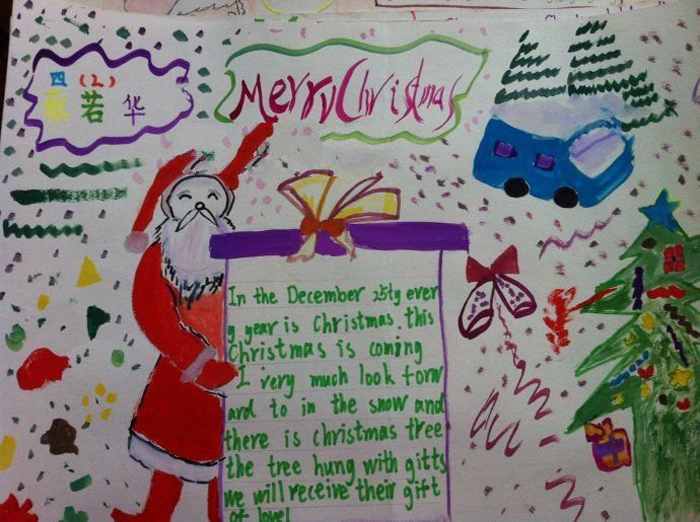 四(2)
若华
Merry Christmas
In the December 25ty ever
y year is Christmas. this
Christmas is coming
I very much look forw
ard to in the snow and
there is christmas tree
the tree hung with gitts
we will receive their gift
of love!